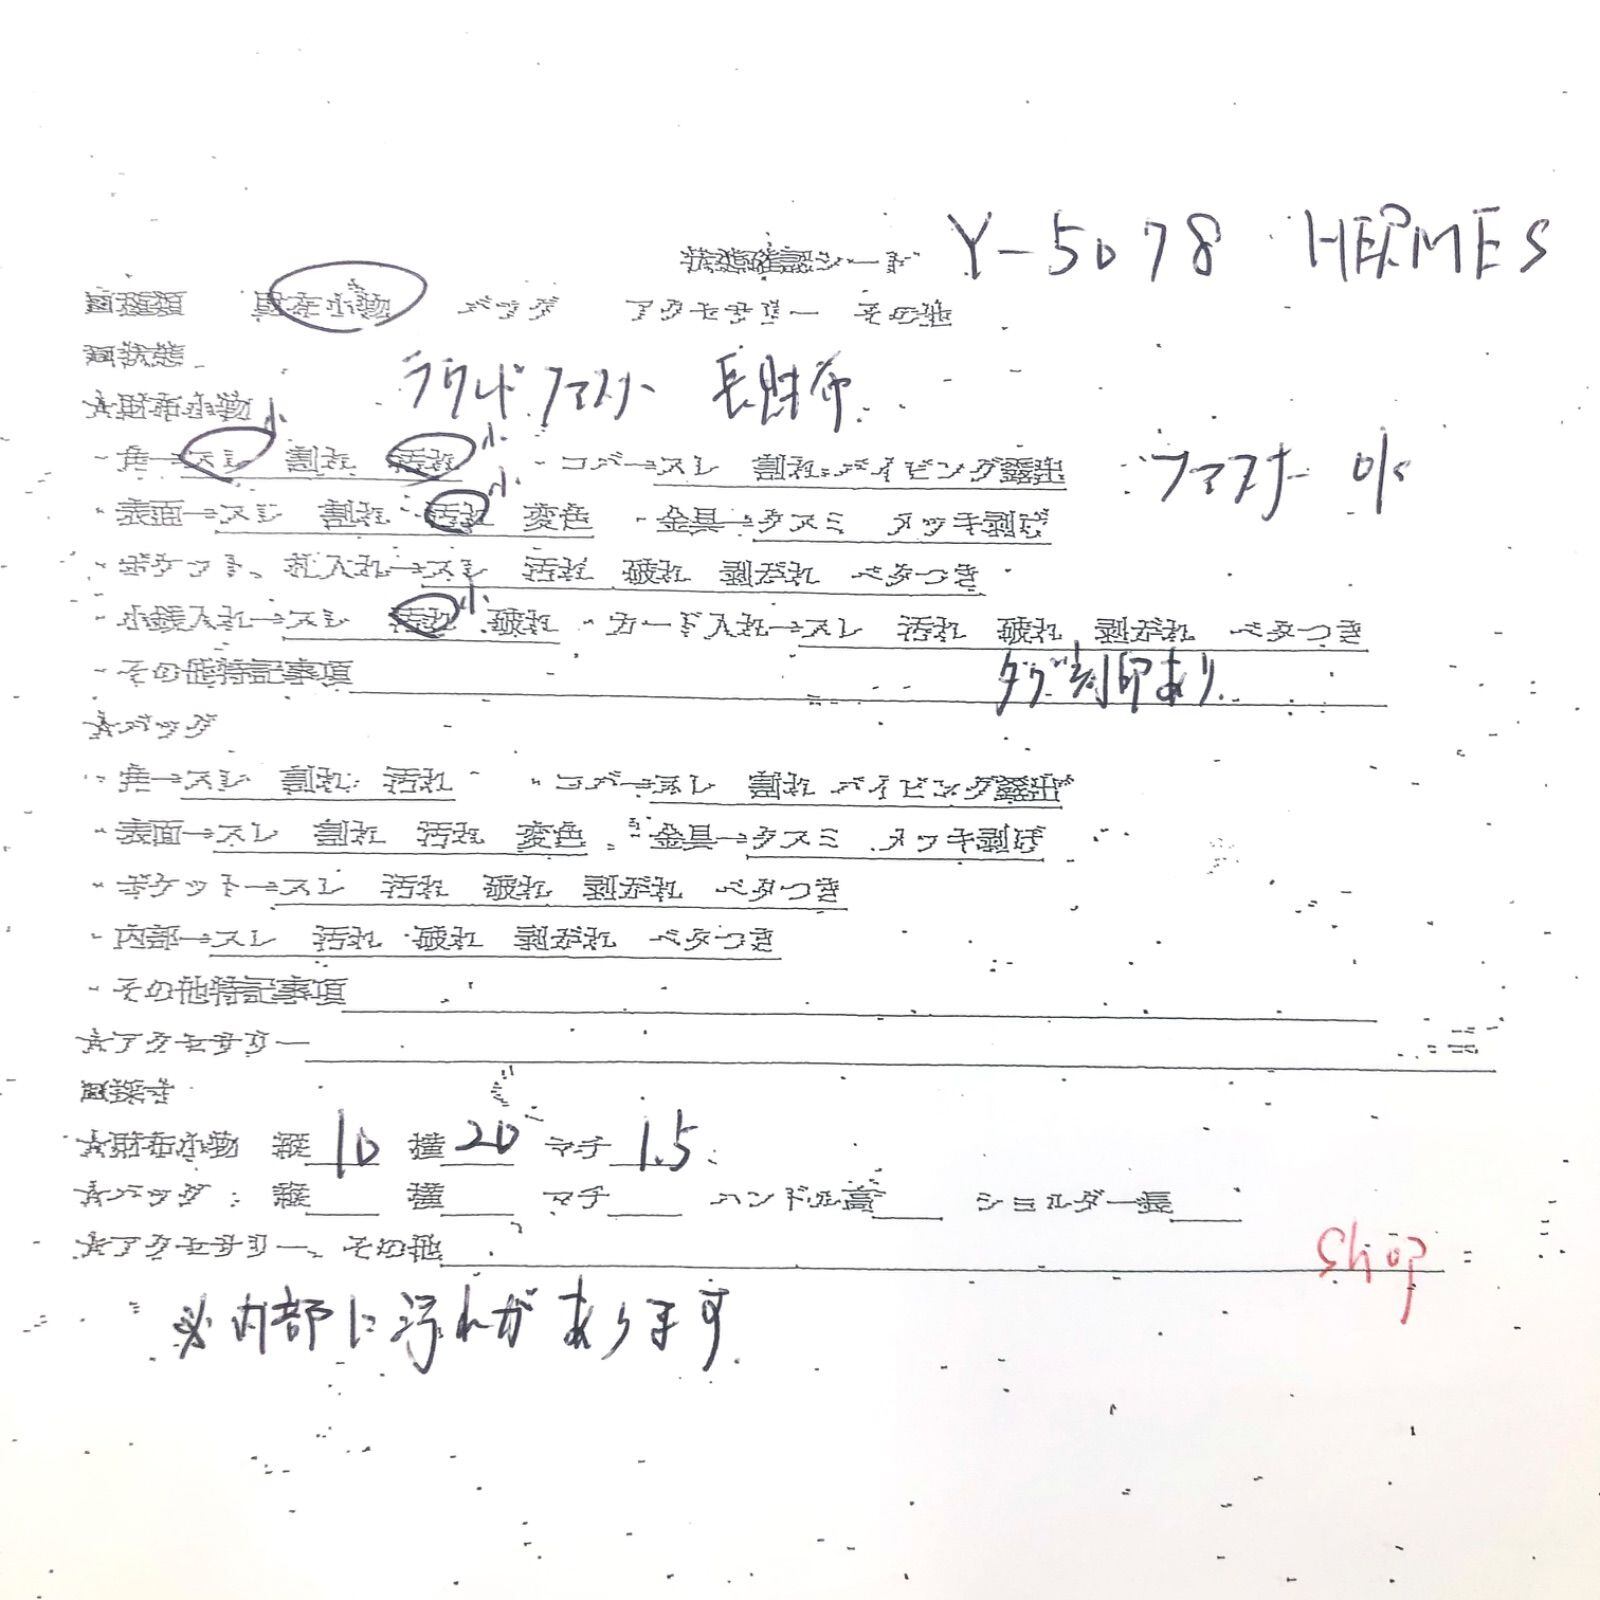 状態確認シート Y-5078 HERMES
■種類 財布小物 バッグ アクセサリー その他
■状態
ラウンドファスナー 長財布
☆財布小物
・角→スレ 小 割れ 汚れ 小 ・コバ→スレ 割れ パイピング露出 ファスナー O/S
・表面→スレ 割れ 汚れ 小 変色 ・金具→クスミ メッキ剥げ
・ポケット、札入れ→スレ 汚れ 破れ 剥がれ ベタつき
・小銭入れ→スレ 汚れ 小 破れ ・カード入れ→スレ 汚れ 破れ 剥がれ ベタつき
・その他特記事項 刻印あり
☆バッグ
・角→スレ 割れ 汚れ ・コバ→スレ 割れ パイピング露出
・表面→スレ 割れ 汚れ 変色 ・金具→クスミ メッキ剥げ
・ポケット→スレ 汚れ 破れ 剥がれ ベタつき
・内部→スレ 汚れ 破れ 剥がれ ベタつき
・その他特記事項
☆アクセサリー
■採寸
☆財布小物 縦 10 横 20 マチ 1.5
☆バッグ 縦 横 マチ ハンドル高 ショルダー長
☆アクセサリー、その他 Shop
※内部に汚れがあります